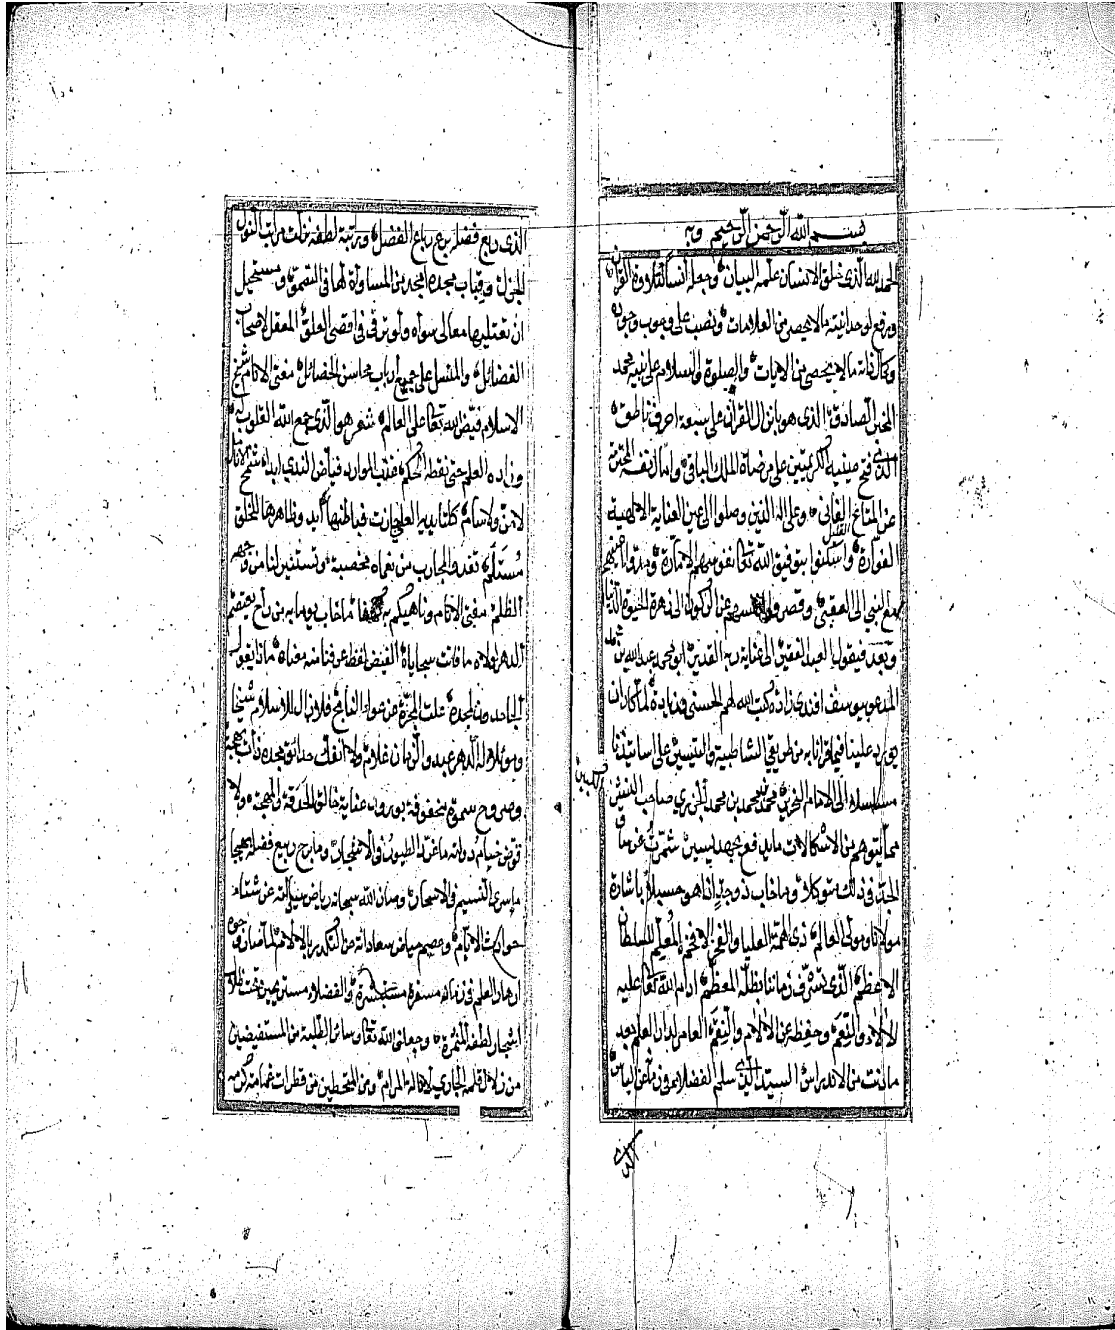 بسم الله الرحمن الرحيم وبه
الحمد لله الذي خلق الانسان علمه البيان وجعله انسا لتلاوة القرآن
ورفع لوحدانيته مالا يحصى من العلامات ونصب على وجوب وجوده
وكمال ذاته مالا يحصى من الايات والصلوة والسلام على نبيه محمد
المخبر الصادق الذي هو بانزال القرآن على سبعة احرف ناطق
الذي فتح عينيه الكريمتين على مرضاة الملك الباقي وامال نفسه المحترزة
عن المتاع الفاني وعلى اله الذين وصلوا الى عين العناية الالهية
الفوارة واسكنوا بتوفيق الله تعالى نفوسهم الامارة
مع النبي الى العقبى وقصروا عن الركون الى زهرة الحيوة الدنيا
وبعد فيقول العبد الفقير الى عناية ربه القدير ابو محمد عبد الله بن محمد
المدعو بيوسف افندي زاده كتب الله لهم الحسنى وزيادة لما كان
يورد علينا فيما قرأنا به من طريقي الشاطبية والتيسير على اساتيذنا
مسلسلا الى الامام النحرير محمد بن محمد بن محمد الجزري صاحب النشر
مما يتوهم من الاشكالات ما يدفع بجهد يسير شمرت عن ساق
الجد في ذلك متوكلا وما خاب ذو جد اذا هو حسبلا باشارة
مولانا ومولى العالم ذي الهمة العليا والفخر الافخم المعلم للسلطان
الاعظم الذي تشرف زماننا بظله المعظم ادام الله تعالى عليه
الالاء والنعم وحفظه عن الالام والنقم العامر لدار العلم بعد
ما دنت من الاندراس السيد الذي سلم لفضله
الذي
الذي ربع فضله برع رباع الفضل ورتبة لطفه نزلت مراتب النوال
الجزل وقباب مجده المساواة لها في السمو ومستحيل
ان تعتليها معالي سواه ولو ترقى في اقصى العلو المعقل لاصحاب
الفضائل والمفضل على جميع ارباب محاسن الخصائل مفتي الانام شيخ
الاسلام فيض الله تعالى على العالم شعر هو الذي جمع الله القلوب به
وزاده العلم حتى نقطه الحكم عذب الموارد فياض الندى ابدا
لا من ولا سأم كلتا يديه العلم فباطنها ابد وظاهرها للخلق
مستلم تغدو المجارب من نعماه مخصبة وتستنير لنا من وجهه
الظلم مفتي الانام وناهيكم به ما خاب يوما به من راح يعتصم
الدهر لولاه ما فاتت سجاياه الفيض لفظ عرفنا منه معناه ماذا يقول
الجاحدون لمجده علت المجرة عن عواء النابح فلا زال للاسلام شيخا
وموئلا له الدهر عبد والزمان غلام ولا انفك حدائق مجده ذات بهجة
وصروح سموه محفوفة بورود عناية خالق الحدقة والمهجة ولا
قوض خيام دولته ما غرد الطيور في الاشجار وما برح ربيع فضله بهيجا
ما سرى النسيم في الاسحار وصان الله سبحانه رياض عن شتاء
حوادث الايام وعصم حياض سعاداته من التكدر بالآلام
ازهار العلم في زمانه مسفرة مستبشرة والفضلاء مستريحين تحت ظلال
اشجار لطفه المثمرة وجعلني الله تعالى وسائر الطلبة من المستفيضين
من زلال قلمه الجاري لانالة المرام ومن المتحظين من قطرات غمامة كرمه